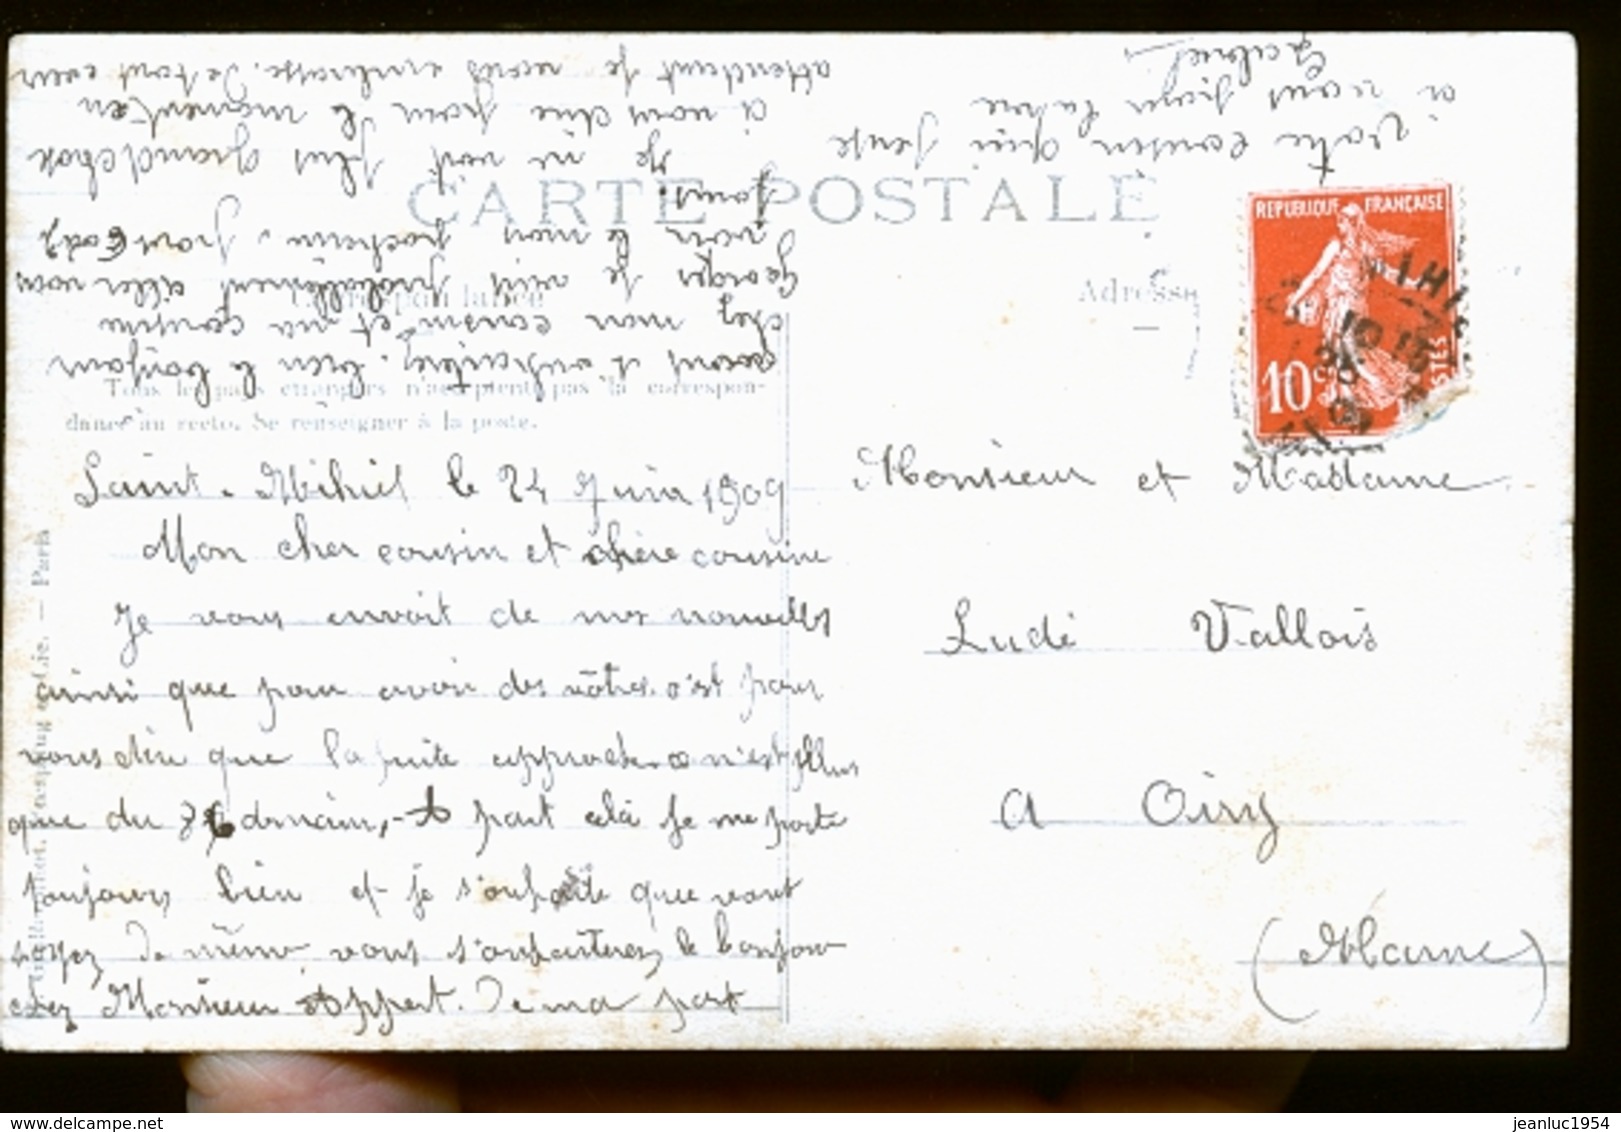 CARTE POSTALE
Correspondance
Adresse
Tous les pays étrangers n'acceptent pas la correspon-
dance au recto. Se renseigner à la poste.
REPUBLIQUE FRANÇAISE
10c
POSTES
Saint-Mihiel le 24 Juin 1909
Mon cher cousin et chère cousine
Je vous envoit de mes nouvelles
ainsi que pour avoir des vôtres. c'est pour
vous dire que la fuite approche ce n'est plus
que du 86 demain, - A part cela je me porte
toujours bien et je s'ouhaite que vous
soyez de même vous s'ouhaiterez le bonjour
chez Monsieur Appert. De ma part
vous souhaiterez bien le bonjour
chez mon cousin et ma cousine
Georges je vais probablement aller vous
voir le mois prochain, pour 6 ou 7
jours
Je ni voit plus grand chose
a vous dire pour le moment en
attendent je vous embrasse. De tout cœur
Votre cousin qui pense
a vous pour la vie
Gabriel
Monsieur et Madame
Ludé Vallois
A Oiry
(Marne)
Paris
jeanluc1954